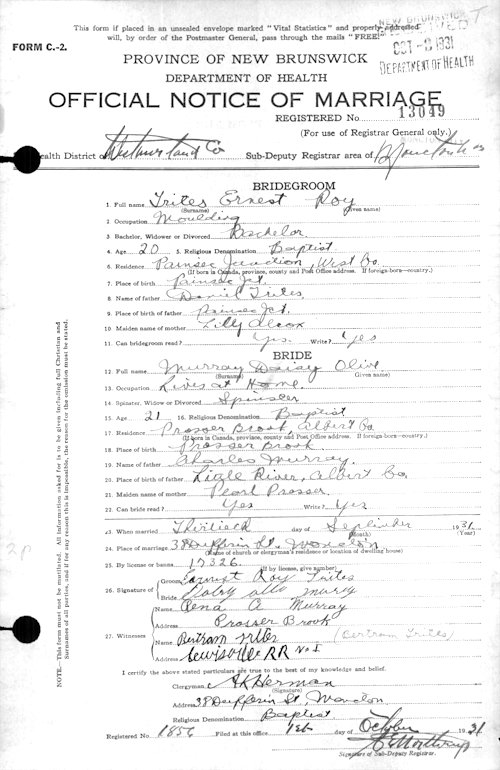 This form if placed in an unsealed envelope marked "Vital Statistics" and properly addressed
will, by order of the Postmaster General, pass through the mails "FREE!"
FORM C.-2.
NEW BRUNSWICK
OCT - 1931
DEPARTMENT OF HEALTH
PROVINCE OF NEW BRUNSWICK
DEPARTMENT OF HEALTH
OFFICIAL NOTICE OF MARRIAGE
REGISTERED No. 13049
(For use of Registrar General only.)
Health District of Westmorland Co Sub-Deputy Registrar area of Moncton
BRIDEGROOM
1. Full name Trites Ernest Roy
(Surname) (Given name)
2. Occupation Moulding
3. Bachelor, Widower or Divorced Bachelor
4. Age 20 5. Religious Denomination Baptist
6. Residence Painsec Junction, West Co.
(If born in Canada, province, county and Post Office address. If foreign-born—country.)
7. Place of birth Painsec Jct.
8. Name of father Daniel Trites
9. Place of birth of father Painsec Jct.
10. Maiden name of mother Lilly Alcox
11. Can bridegroom read? Yes. Write? Yes
BRIDE
12. Full name Murray Daisy Olive
(Surname) (Given name)
13. Occupation Lives at Home
14. Spinster, Widow or Divorced Spinster
15. Age 21 16. Religious Denomination Baptist
17. Residence Prosser Brook, Albert Co.
(If born in Canada, province, county and Post Office address. If foreign-born—country.)
18. Place of birth Prosser Brook
19. Name of father Charles Murray
20. Place of birth of father Little River, Albert Co.
21. Maiden name of mother Pearl Prosser
22. Can bride read? Yes Write? Yes
23. When married Thirtieth day of September 1931
(Month) (Year)
24. Place of marriage 38 Dufferin St, Moncton
(Name of church or clergyman's residence or location of dwelling house)
25. By license or banns 17326
(If by license, give number)
26. Signature of
Groom Earnest Roy Trites
Bride
27. Witnesses
Name Rena A Murray
Address Prosser Brook
Name Bertram Trites (Bertram Trites)
Address Lewisville RR No 1
I certify the above stated particulars are true to the best of my knowledge and belief.
Clergyman Herman
(Signature)
Address 38 Dufferin St, Moncton
Religious Denomination Baptist
Registered No. 1856 Filed at this office 1st day of October 1931
Signature of Sub-Deputy Registrar.
NOTE. This form must not be mutilated. All information asked for is to be given including full Christian and
Surnames of all parties, and if for any reason this is impossible, the reason for this omission must be stated.